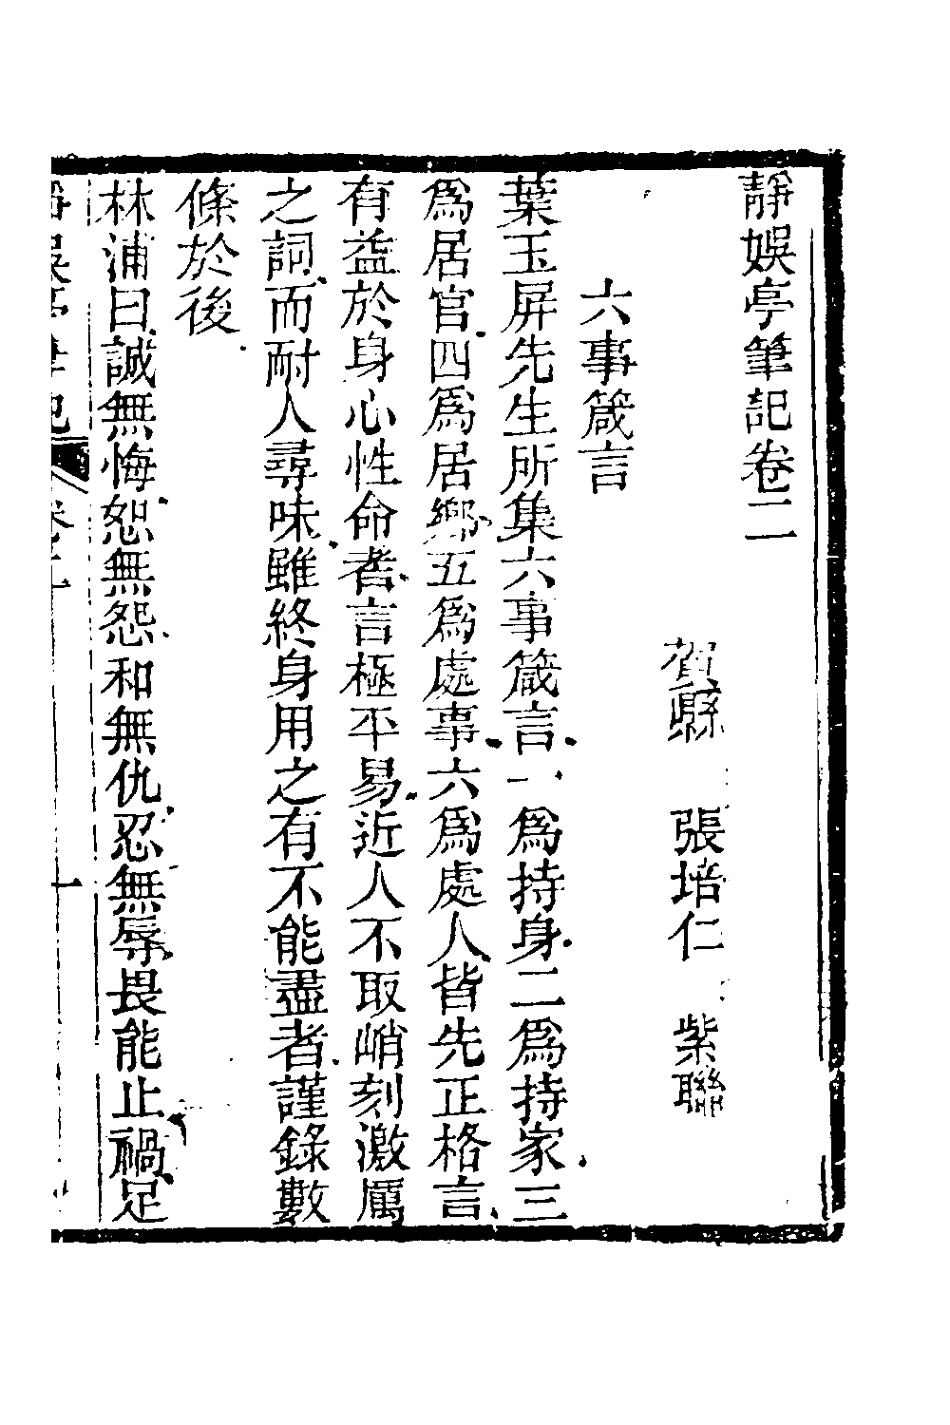 靜娛亭筆記卷二
賀縣　張培仁　紫聯
六事箴言
葉玉屏先生所集六事箴言一爲持身二爲持家三
爲居官四爲居鄉五爲處事六爲處人皆先正格言
有益於身心性命者言極平易近人不取峭刻激厲
之詞而耐人尋味雖終身用之有不能盡者謹錄數
條於後
林浦曰誠無悔恕無怨和無仇忍無辱畏能止禍足
靜娛亭筆記 卷二 一